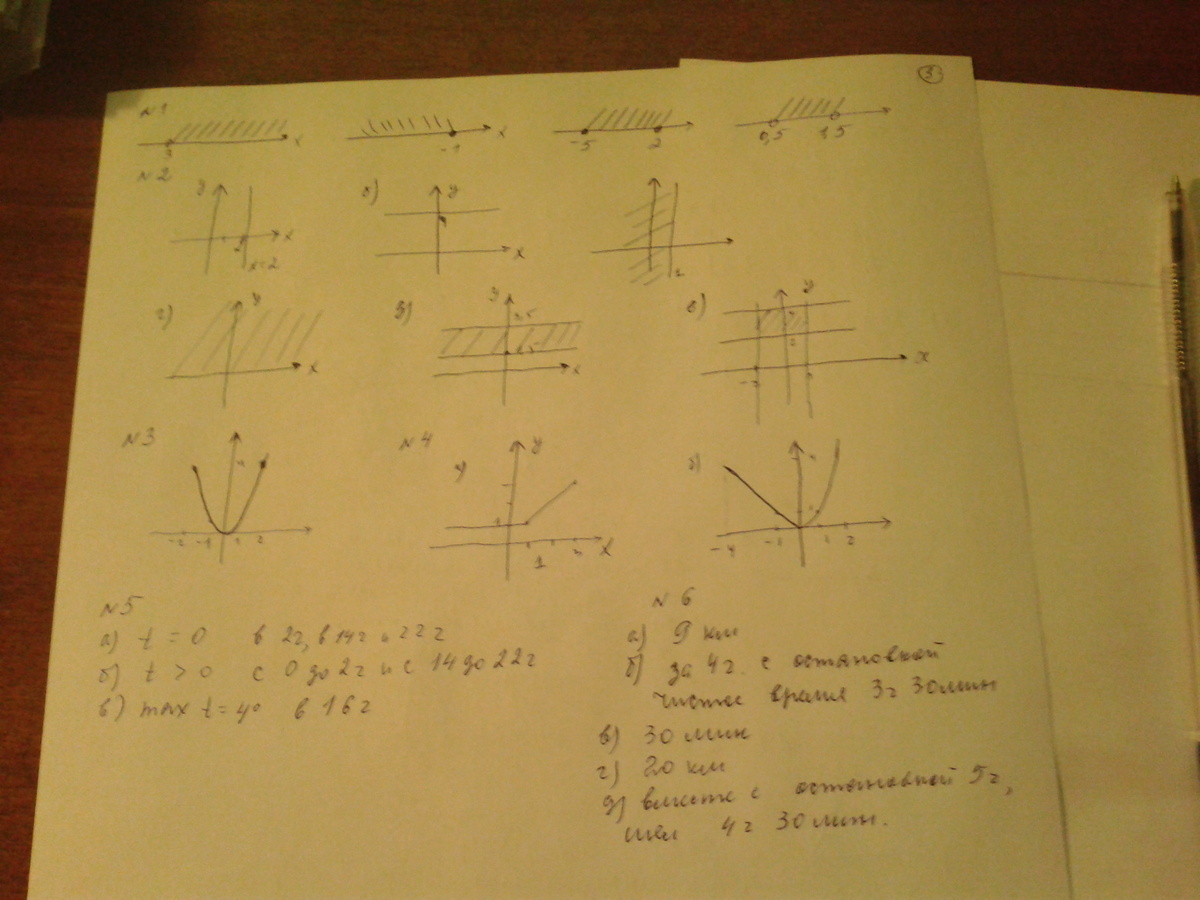 3
№1
3 x
-1 x
-5 2
0,5 1,5
№2
y x x=2
б) y x
г) y x
д) y x
е) y x
№3
-2 -1 1 2
№4
а) y 1 x
б) -4 -1 1 2
№5
а) t = 0 в 2ч, в 14ч и 22ч
б) t > 0 с 0 до 2ч и с 14 до 22ч
в) max t = 4° в 16ч
№6
а) 9 км
б) за 4ч. с остановкой
чистое время 3ч 30мин
в) 30 мин
г) 20 км
д) вместе с остановкой 5ч,
шел 4ч 30мин.